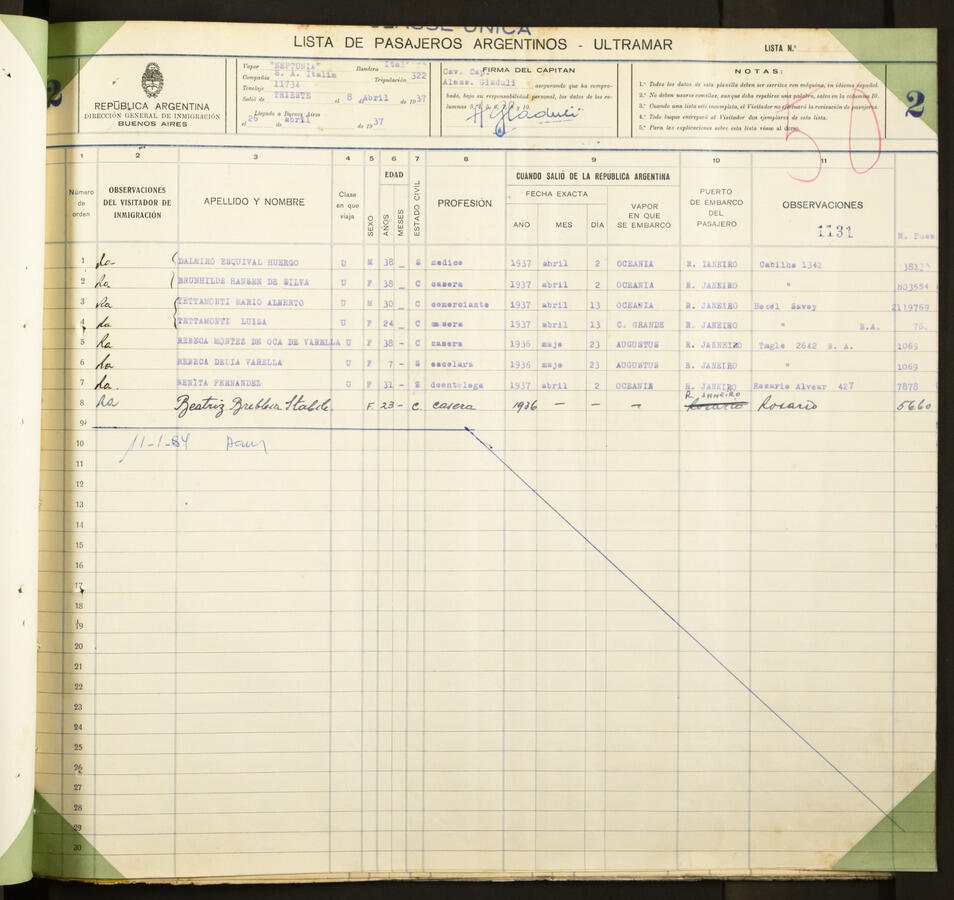 CLASSE UNICA
LISTA DE PASAJEROS ARGENTINOS - ULTRAMAR
LISTA N.°
2
REPÚBLICA ARGENTINA
DIRECCIÓN GENERAL DE INMIGRACIÓN
BUENOS AIRES
Vapor "NEPTUNIA" Bandera Ital
Compañía S. A. Italia Tripulación 322
Tonelaje 11734
Salió de TRIESTE el 8 de Abril de 1937
Llegado a Buenos Aires
el 26 de abril de 1937
FIRMA DEL CAPITAN
Cav. Cap.
Aless. Gladuli
asegurando que ha comprobado, bajo su responsabilidad personal, los datos de las columnas
NOTAS:
1.° Todos los datos de esta planilla deben ser escritos con máquina, en idioma español.
2.° No deben usarse comillas, aunque deba repetirse una palabra, salvo en la columna 10.
3.° Cuando una lista esté incompleta, el Visitador no efectuará la revisación de pasajeros.
4.° Todo buque entregará al Visitador dos ejemplares de esta lista.
5.° Para las explicaciones sobre esta lista véase al dorso.
50
2
1 2 3 4 5 6 7 8 9 10 11
Número de orden
OBSERVACIONES DEL VISITADOR DE INMIGRACIÓN
APELLIDO Y NOMBRE
Clase en que viaja
SEXO
EDAD
AÑOS
MESES
ESTADO CIVIL
PROFESIÓN
CUANDO SALIÓ DE LA REPÚBLICA ARGENTINA
FECHA EXACTA
AÑO MES DÍA
VAPOR EN QUE SE EMBARCÓ
PUERTO DE EMBARCO DEL PASAJERO
OBSERVACIONES
1131
N. Pass
1 DALMIRO ESQUIVAL HUERGO U M 38 - S medico 1937 abril 2 OCEANIA R. IANEIRO Cabilho 1342
2 BRUNHILDE HANSEN DE SILVA U F 38 - C casera 1937 abril 2 OCEANIA R. JANEIRO " N03554
3 TETTAMONTI MARIO ALBERTO U M 30 - C comerciante 1937 abril 13 OCEANIA R. JANEIRO Hotel Savoy 2119769
4 TETTAMONTI LUISA U F 24 - C casera 1937 abril 13 C. GRANDE R. JANEIRO " B.A.
5 REBECA MONTEZ DE OCA DE VARELLA U F 38 - C casera 1936 maje 23 AUGUSTUS R. JASNEIRO Tagle 2642 B. A. 1069
6 REBECA DELIA VARELLA U F 7 - S escolara 1936 maje 23 AUGUSTUS R. JANEIRO " 1069
7 BENITA FERNANDEZ U F 31 - S deontologa 1937 abril 2 OCEANIA R. JANEIRO Rosario Alvear 427 7878
8 Beatriz F. 23 - C. casera 1936 - - - R. JANEIRO Rosario Rosario 5660
9
10 11-1-84
11
12
13
14
15
16
17
18
19
20
21
22
23
24
25
26
27
28
29
30